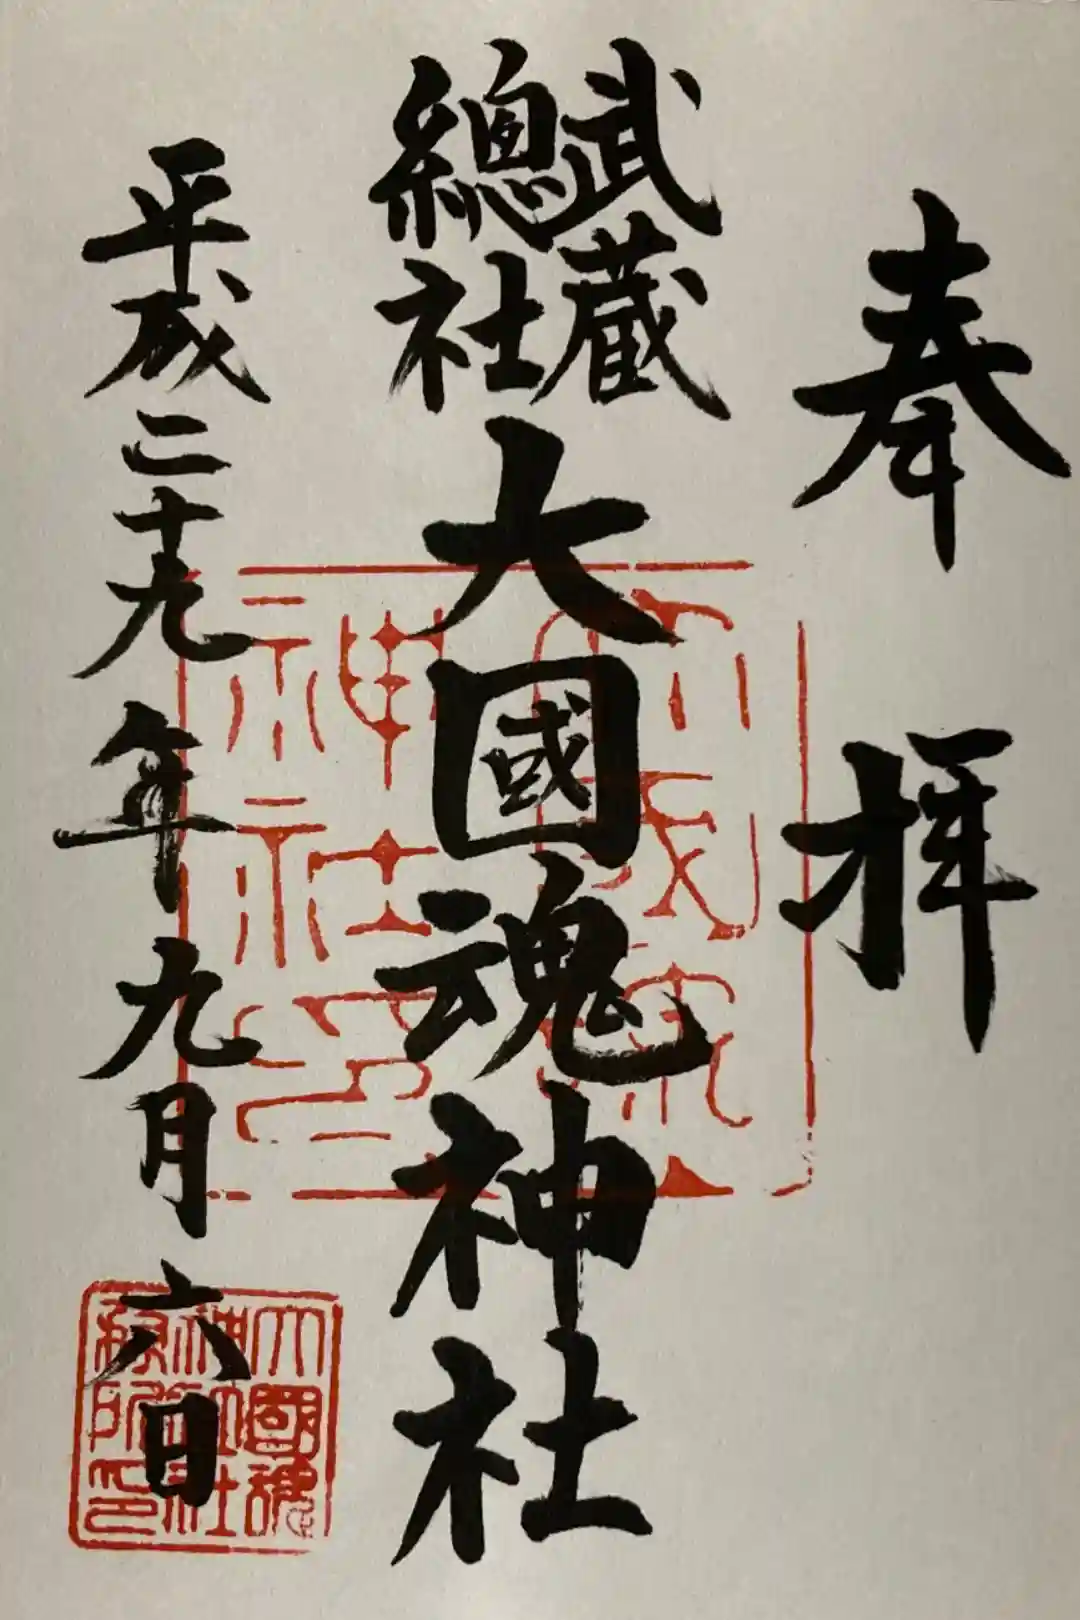 奉拝
武蔵
總社
大國魂神社
平成二十九年九月六日
大國魂
神社
印